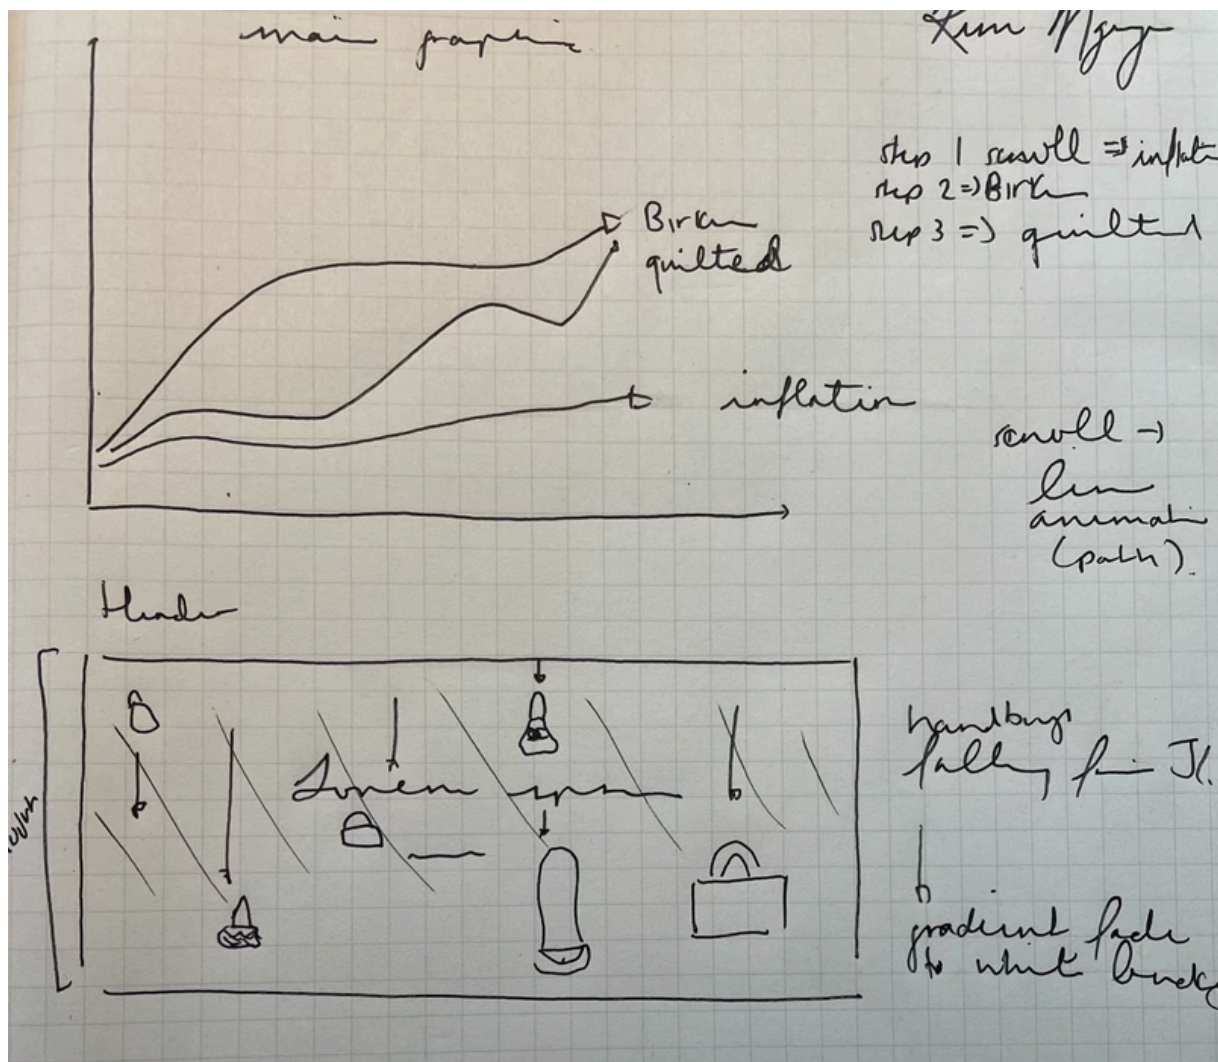 main graphic
Kim
step 1 scroll => inflat
step 2 => Birkin
step 3 => quilted
Birkin
quilted
inflation
scroll →
line
animati
(path).
Header
Lorem ipsum
handbags
falling
gradient fade
to white